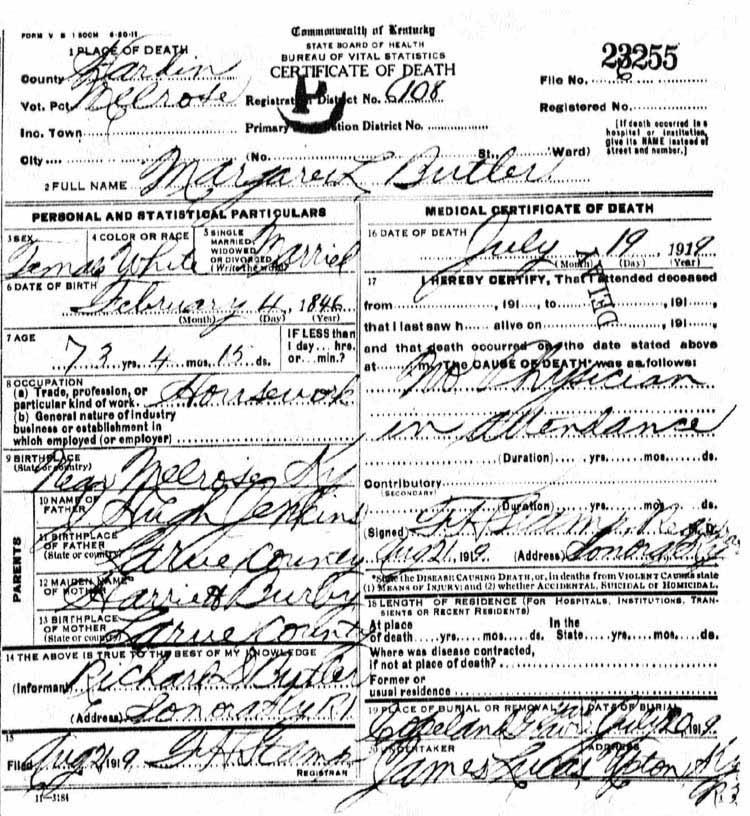 FORM V S 1 500M 6-20-11
Commonwealth of Kentucky
STATE BOARD OF HEALTH
BUREAU OF VITAL STATISTICS
CERTIFICATE OF DEATH
1 PLACE OF DEATH
County Hardin
Vot. Pct. Melrose
Inc. Town
City
Registration District No. 6108
Primary Registration District No.
(No. St., Ward)
23255
File No.
Registered No.
[If death occurred in a
hospital or institution,
give its NAME instead of
street and number.]
2 FULL NAME Margaret L Butler
PERSONAL AND STATISTICAL PARTICULARS
3 SEX
Female
4 COLOR OR RACE
White
5 SINGLE
MARRIED
WIDOWED
OR DIVORCED
(Write the word)
Married
6 DATE OF BIRTH
February 4, 1846
(Month) (Day) (Year)
7 AGE
73 yrs. 4 mos. 15 ds.
IF LESS than
1 day... hrs.
or... min.?
8 OCCUPATION
(a) Trade, profession, or
particular kind of work Housework
(b) General nature of industry
business or establishment in
which employed (or employer)
9 BIRTHPLACE
(State or country)
Near Melrose Ky
PARENTS
10 NAME OF
FATHER
Hugh Jenkins
11 BIRTHPLACE
OF FATHER
(State or country)
Larue County
12 MAIDEN NAME
OF MOTHER
Harriett
13 BIRTHPLACE
OF MOTHER
(State or country)
Larue County
14 THE ABOVE IS TRUE TO THE BEST OF MY KNOWLEDGE
(Informant) Richard S Butler
(Address) Sonora Ky R1
15
Filed Aug 21 1919 Stamp
REGISTRAR
11-3184
MEDICAL CERTIFICATE OF DEATH
16 DATE OF DEATH
July 19, 1919
(Month) (Day) (Year)
17 I HEREBY CERTIFY, That I attended deceased
from , 191 , to , 191 ,
that I last saw h alive on , 191 ,
and that death occurred on the date stated above
at m. The CAUSE OF DEATH* was as follows:
No Physician
in attendance
(Duration) yrs. mos. ds.
Contributory
(SECONDARY)
(Duration) yrs. mos. ds.
(Signed) Stamp
Aug 21, 1919 (Address) Sonora Ky
*State the DISEASE CAUSING DEATH, or, in deaths from VIOLENT CAUSES state
(1) MEANS OF INJURY; and (2) whether ACCIDENTAL, SUICIDAL or HOMICIDAL.
18 LENGTH OF RESIDENCE (FOR HOSPITALS, INSTITUTIONS, TRAN-
SIENTS OR RECENT RESIDENTS)
At place
of death yrs. mos. ds.
In the
State yrs. mos. ds.
Where was disease contracted,
if not at place of death?
Former or
usual residence
19 PLACE OF BURIAL OR REMOVAL
Copeland
DATE OF BURIAL
July 20 1919
20 UNDERTAKER
James Lucas
ADDRESS
Upton Ky
R3